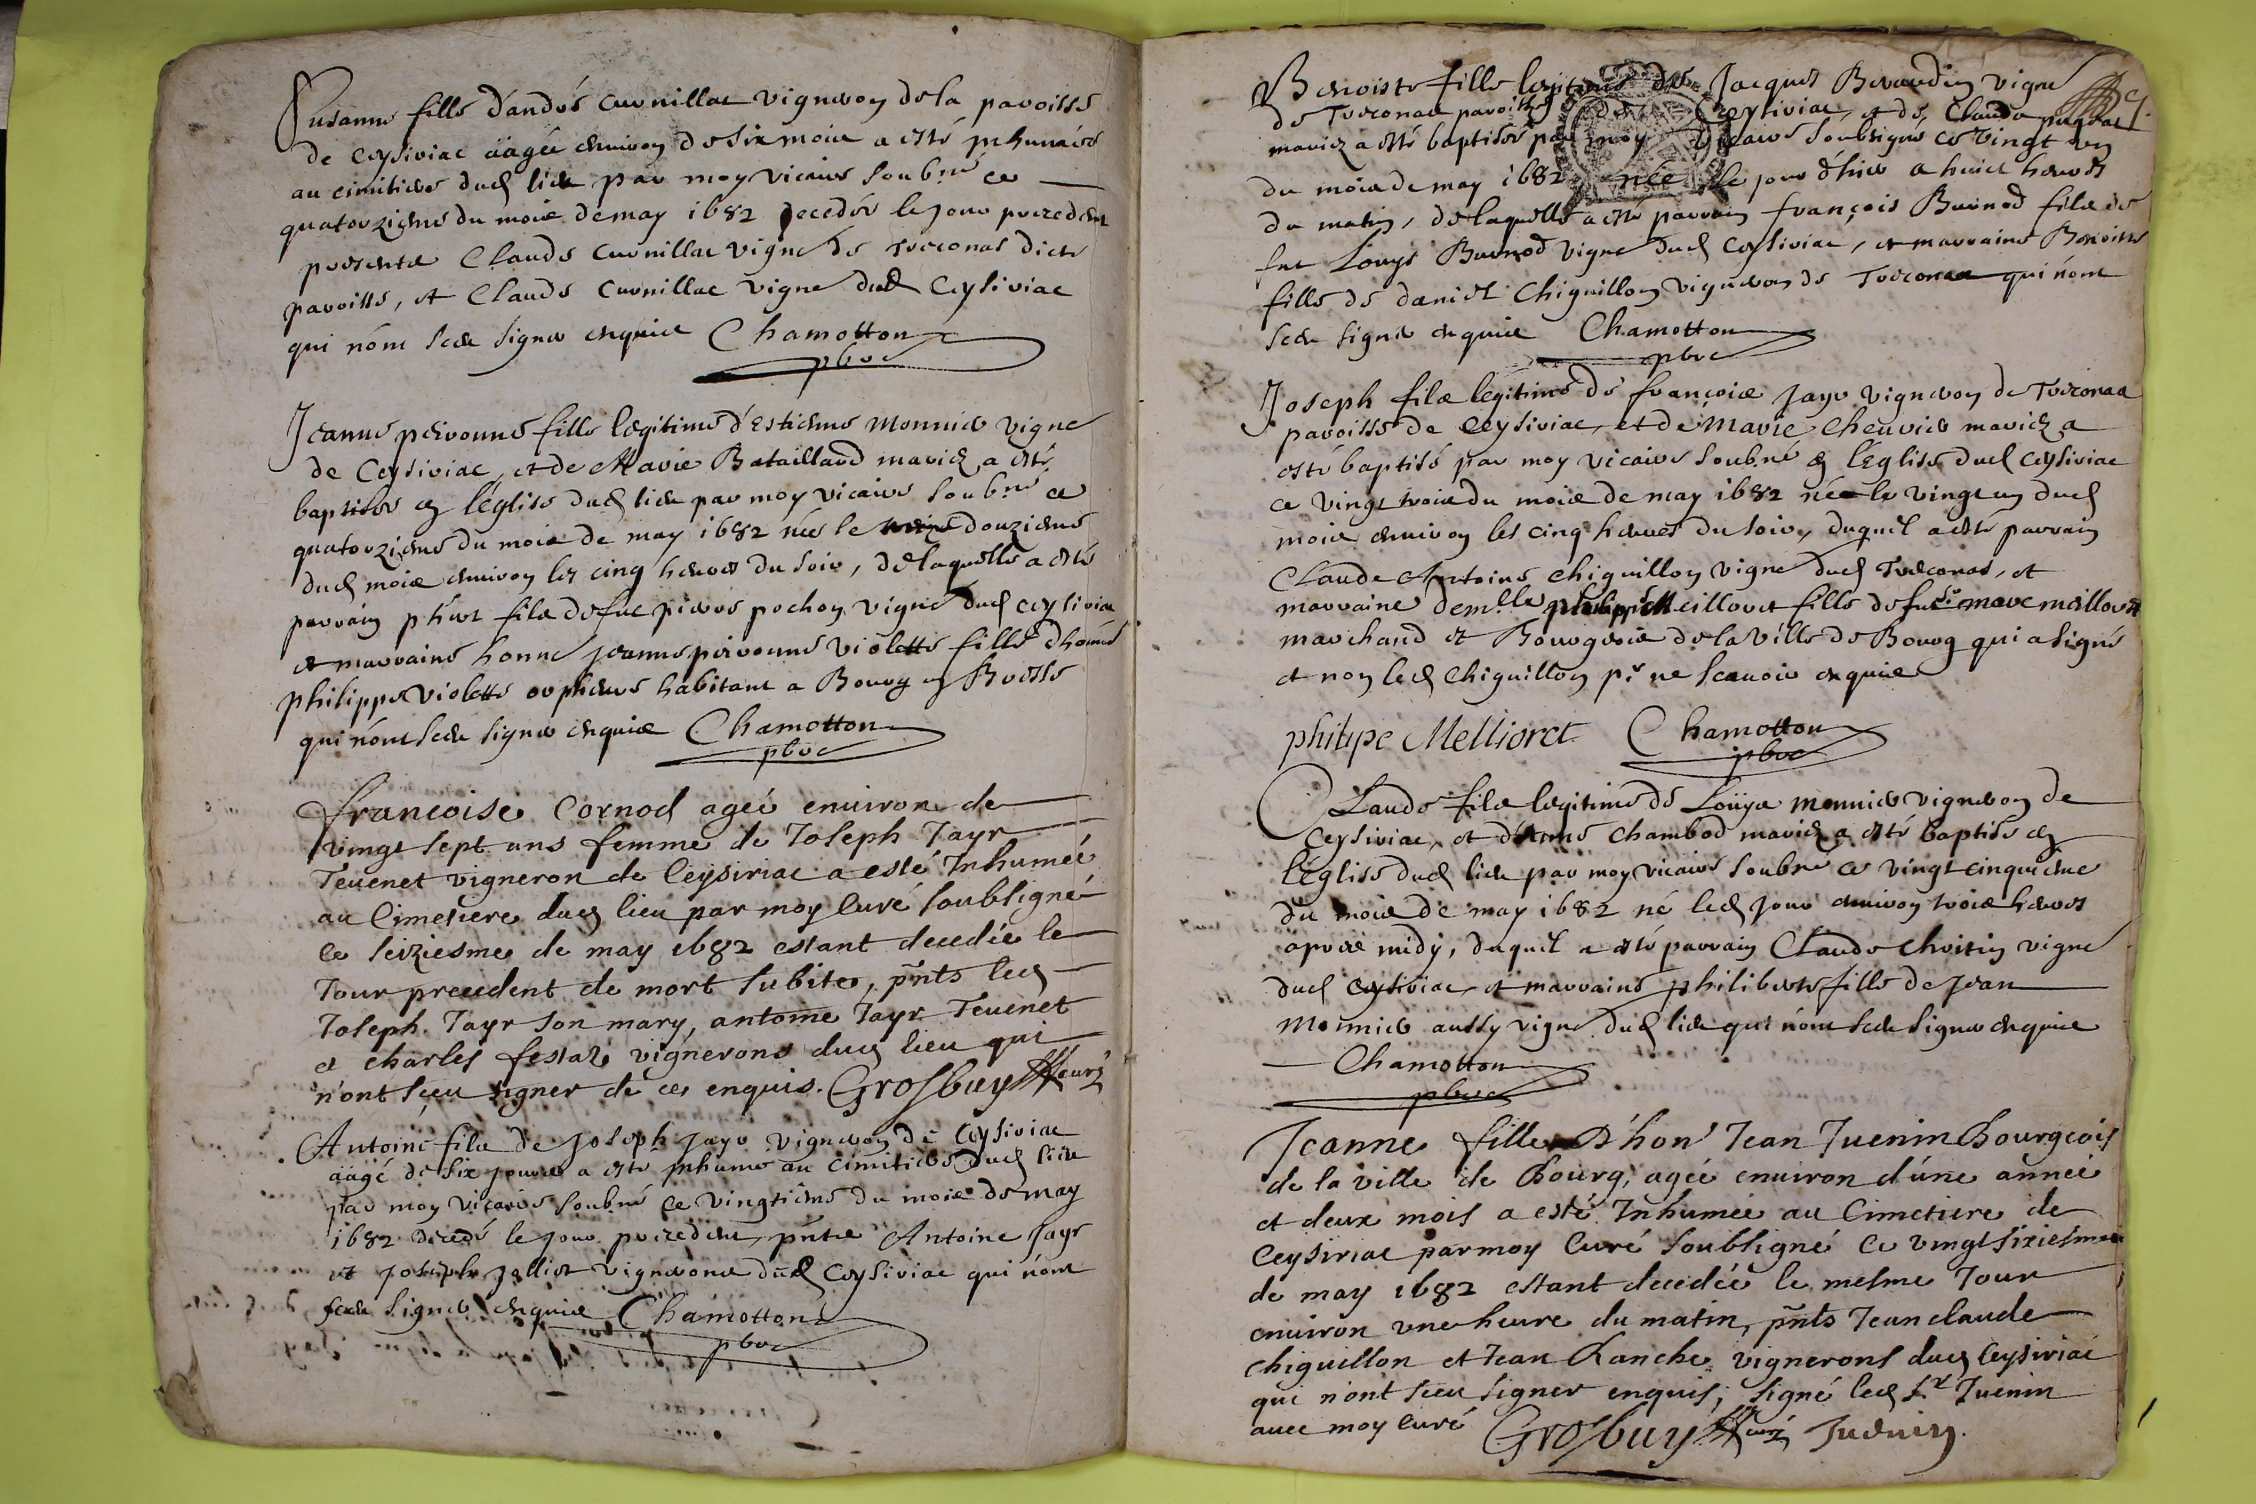 Susanne fille d'andré Curnillac vigneron de la paroisse
de Ceysiriac aagée environ de six mois a esté inhumée
au cimitiere dud lieu par moy vicaire soubné ce
quatorzieme du mois de may 1682 decedée le jour precedent
presents Claude Curnillac vigne de Treconas dicte
paroisse, et Claude Curnillac vigne dud Ceysiriac
qui n'ont sceu signer enquis Chamotton
pbre
Jeanne perronne fille legitime d'Estienne Monnier vigne
de Ceysiriac, et de Marie Bataillard mariez a esté
baptisée en l'église dud lieu par moy vicaire soubné ce
quatorzieme du mois de may 1682 née le douzieme
dud mois environ les cinq heures du soir, de laquelle a esté
parrain phibert fils de fut pierre pochon vigne dud Ceysiriac
et marraine honne jeanne perronne violette fille d'honne
philippe violette orphevre habitant a Bourg en Bresse
qui n'ont sceu signer enquis Chamotton
pbre
francoise Cornod ageé enuiron de
vingt sept ans femme de Joseph Jayr
Teuenet vigneron de Ceysiriac a esté Inhumeé
au Cimetiere dud lieu par moy Curé soubsigné
ce seiziesme de may 1682 estant decedée le
Jour precedent de mort subite, pnts led
Joseph Jayr son mary, antoine Jayr Teuenet
et charles festaz vignerons dud lieu qui
n'ont sceu signer de ce enquis. Grosbuy curé
Antoine fils de Joseph Jayr vigneron de Ceysiriac
aagé de six jours a esté inhumé au cimitiere dud lieu
par moy vicaire soubné ce vingtieme du mois de may
1682 decedé le jour precedent, pnts Antoine Jayr
et Joseph Jolliet vignerons dud Ceysiriac qui n'ont
sceu signer enquis Chamotton
pbre
Benoiste fille legitime de Jacques Beraudin vigne
de Treconas paroisse de Ceysiriac, et de Claude
mariez a esté baptisée par moy vicaire soubsigné ce vingt un
du mois de may 1682 née le jour d'hier a huict heures
du matin, de laquelle a esté parrain françois Burnod fils de
fut Louys Burnod vigne dud Ceysiriac, et marraine Benoiste
fille de daniel Chiguillon vigneron de Treconas qui n'ont
sceu signer enquis Chamotton
pbre
Joseph fils legitime de françois Jayr vigneron de Treconas
paroisse de Ceysiriac, et de Marie Cheuvier mariez a
esté baptisé par moy vicaire soubné en l'Eglise dud Ceysiriac
ce vingt trois du mois de may 1682 né le vingt un dud
mois environ les cinq heures du soir, duquel a esté parrain
Claude Antoine Chiguillon vigne dud Treconas, et
marraine demelle philippe Meilloret fille de fut sr marc meilloret
marchand et Bourgeois de la ville de Bourg qui a signé
et non led Chiguillon pr ne scavoir enquis
philipe Mellioret Chamotton
pbre
Claude fils legitime de Loüys Monnier vigneron de
Ceysiriac, et d'anne Chambod mariez a esté baptisé en
l'église dud lieu par moy vicaire soubné ce vingt cinquieme
du mois de may 1682 né led jour environ trois heures
apres midy, duquel a esté parrain Claude Chritin vigne
dud Ceysiriac, et marraine philiberte fille de Jean
Monnier aussy vigne dud lieu qui n'ont sceu signer enquis
Chamotton
pbre
Jeanne fille D'hon Jean Juenin Bourgeois
de la ville de Bourg, ageé enuiron d'une anneé
et deux mois a esté Inhumée au Cimetiere de
Ceysiriac par moy Curé soubsigné ce vingt sixiesme
de may 1682 estant decedée le mesme Jour
enuiron une heure du matin, pnts Jean claude
Chiguillon et Jean Ranche vignerons dud Ceysiriac
qui n'ont sceu signer enquis; signé led sr Juenin
auec moy Curé Grosbuy curé Juenin